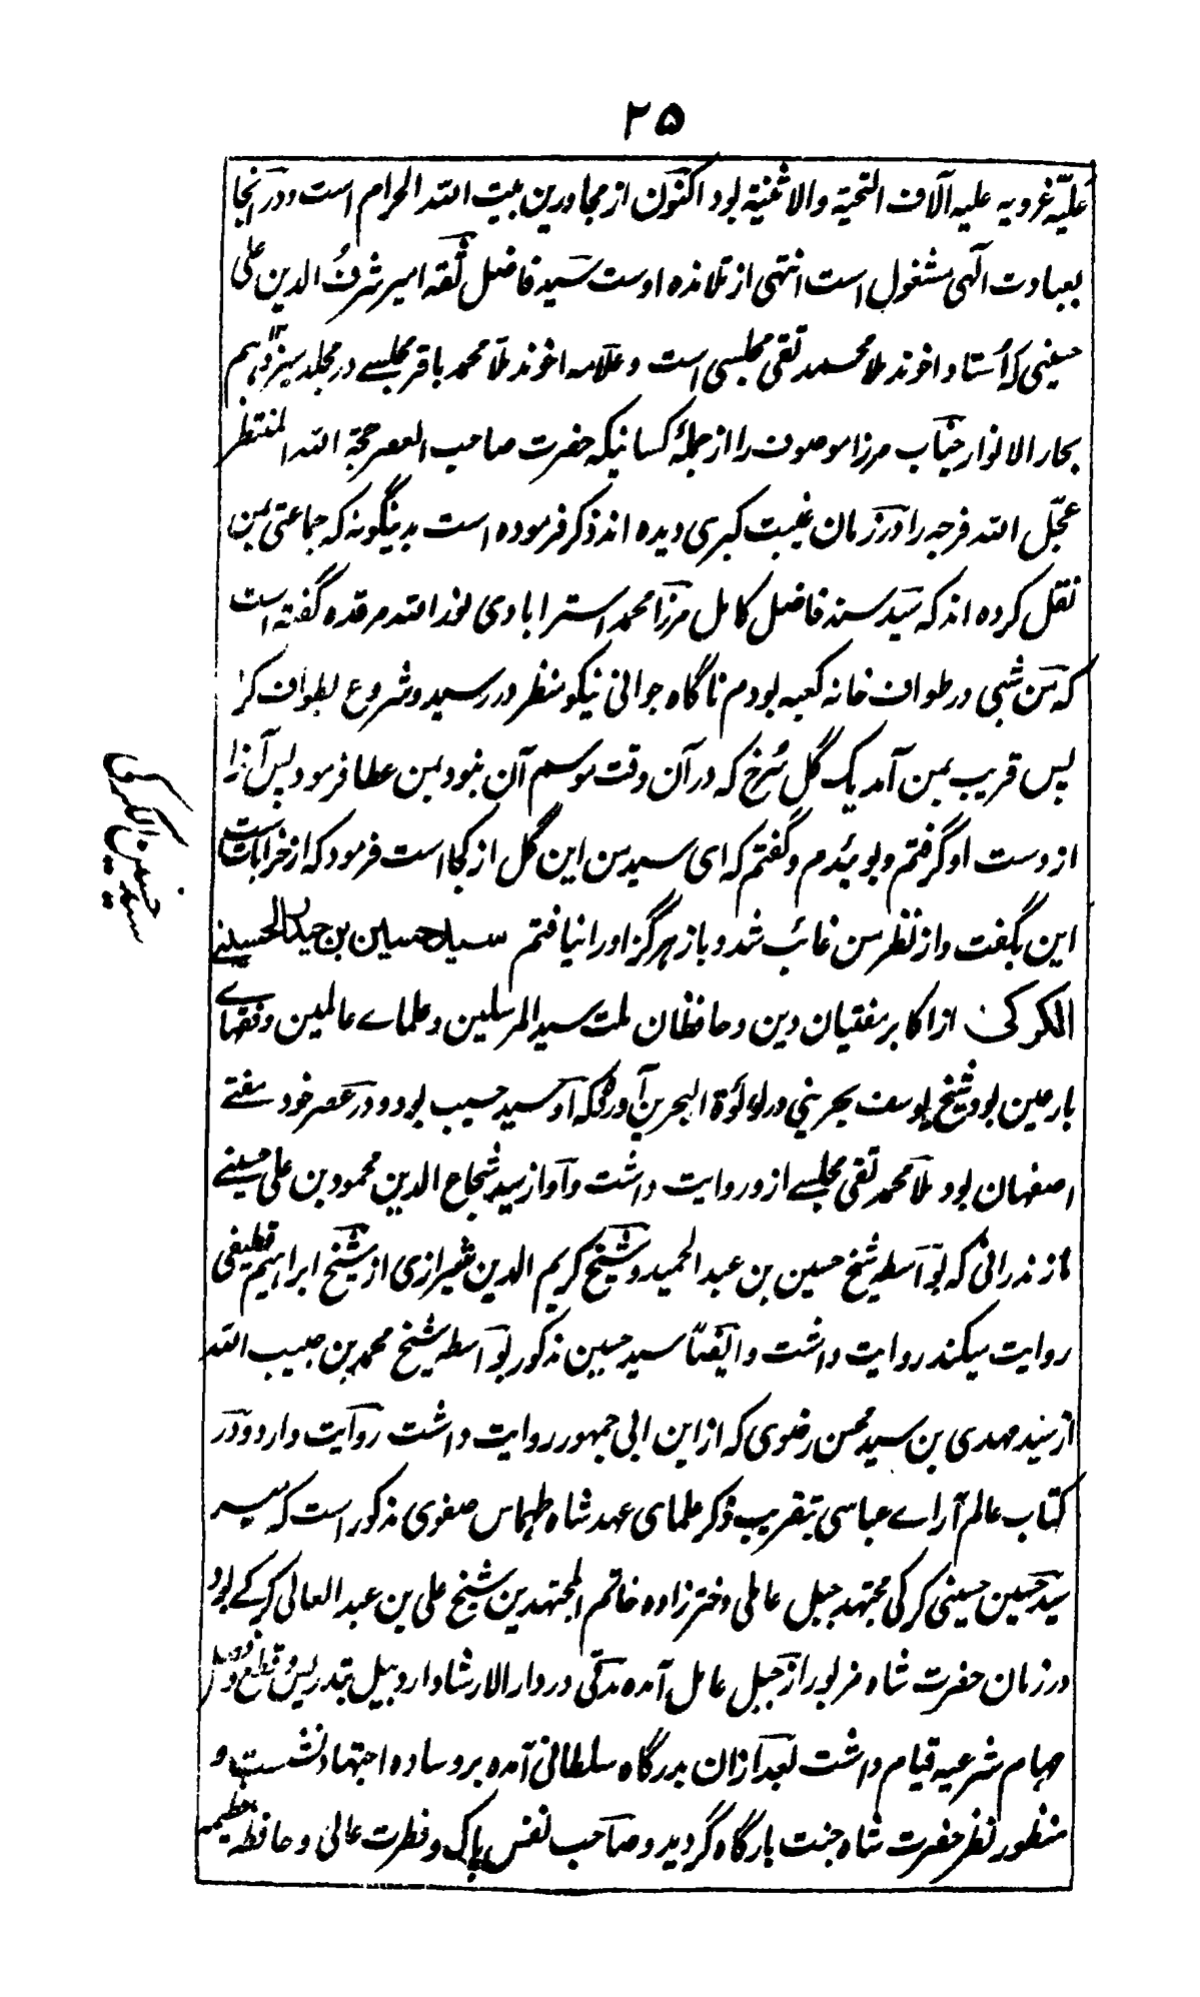 ۲۵
علیّه غرویه علیه آلاف التحیة والاثنیة بود اکنون از مجاورین بیت الله الحرام است ودر آنجا
بعبادت الهی مشغول است انتهی از تلامذه اوست سید فاضل ثقه امیر شرف الدین علی
حسینی که استاد اخوند ملا محمد تقی مجلسی است و علامه اخوند ملا محمد باقر مجلسے در مجلد سیزدهم
بحار الانوار جناب مرزا موصوف را از جملۂ کسانیکه حضرت صاحب العصر حجة الله المنتظر
عجّل الله فرجه را در زمان غیبت کبری دیده اند ذکر فرموده است بدینگونه که جماعتی بمن
نقل کرده اند که سید سند فاضل کامل مرزا محمد استرابادی نور الله مرقده گفته است
که من شبی در طواف خانه کعبه بودم ناگاه جوانی نیکو منظر در رسید و شروع بطواف کرد
پس قریب بمن آمد یک گل سُرخ که در آن وقت موسم آن نبود بمن عطا فرمود پس آنرا
از دست او گرفتم و بوئیدم و گفتم که ای سید من این گل از کجا است فرمود که از خرابات است
این بگفت و از نظر من غائب شد و باز هرگز او را نیافتم سید حسین بن حیدر الحسینے
الکرکی از اکابر مفتیان دین و حافظان ملت سید المرسلین و علماے عالمین و فقهاے
بارعین بود شیخ یوسف بحرینی در لولؤة البحرین آورده که او سید حسیب بود و در عصر خود مفتے
اصفهان بود ملا محمد تقی مجلسے ازو روایت داشت و او از سید شجاع الدین محمود بن علی حسینے
مازندرانی که بواسطه شیخ حسین بن عبد الحمید و شیخ کریم الدین شیرازی از شیخ ابراهیم قطیفی
روایت میکند روایت داشت و ایضاً سید حسین مذکور بواسطه شیخ محمد بن حبیب الله
از سید مهدی بن سید محسن رضوی که از ابن ابی جمهور روایت داشت روایت دارد و در
کتاب عالم آراے عباسی بتقریب ذکر علمای عهد شاه طهماس صفوی مذکور است که میر
سید حسین حسینی کرکی مجتهد جبل عاملی دختر زاده خاتم المجتهدین شیخ علی بن عبد العالی کرکے بود
در زمان حضرت شاه مزبور از جبل عامل آمده مدتی در دار الارشاد اردبیل بتدریس و قطع و فصل
مهام شرعیه قیام داشت بعد ازان بدرگاه سلطانی آمده بر وساده اجتهاد نشست و
منظور نظر حضرت شاه جنت بارگاه گردید و صاحب نفس پاک و فطرت عالی و حافظه عظیمه
سید حسین الکرکی